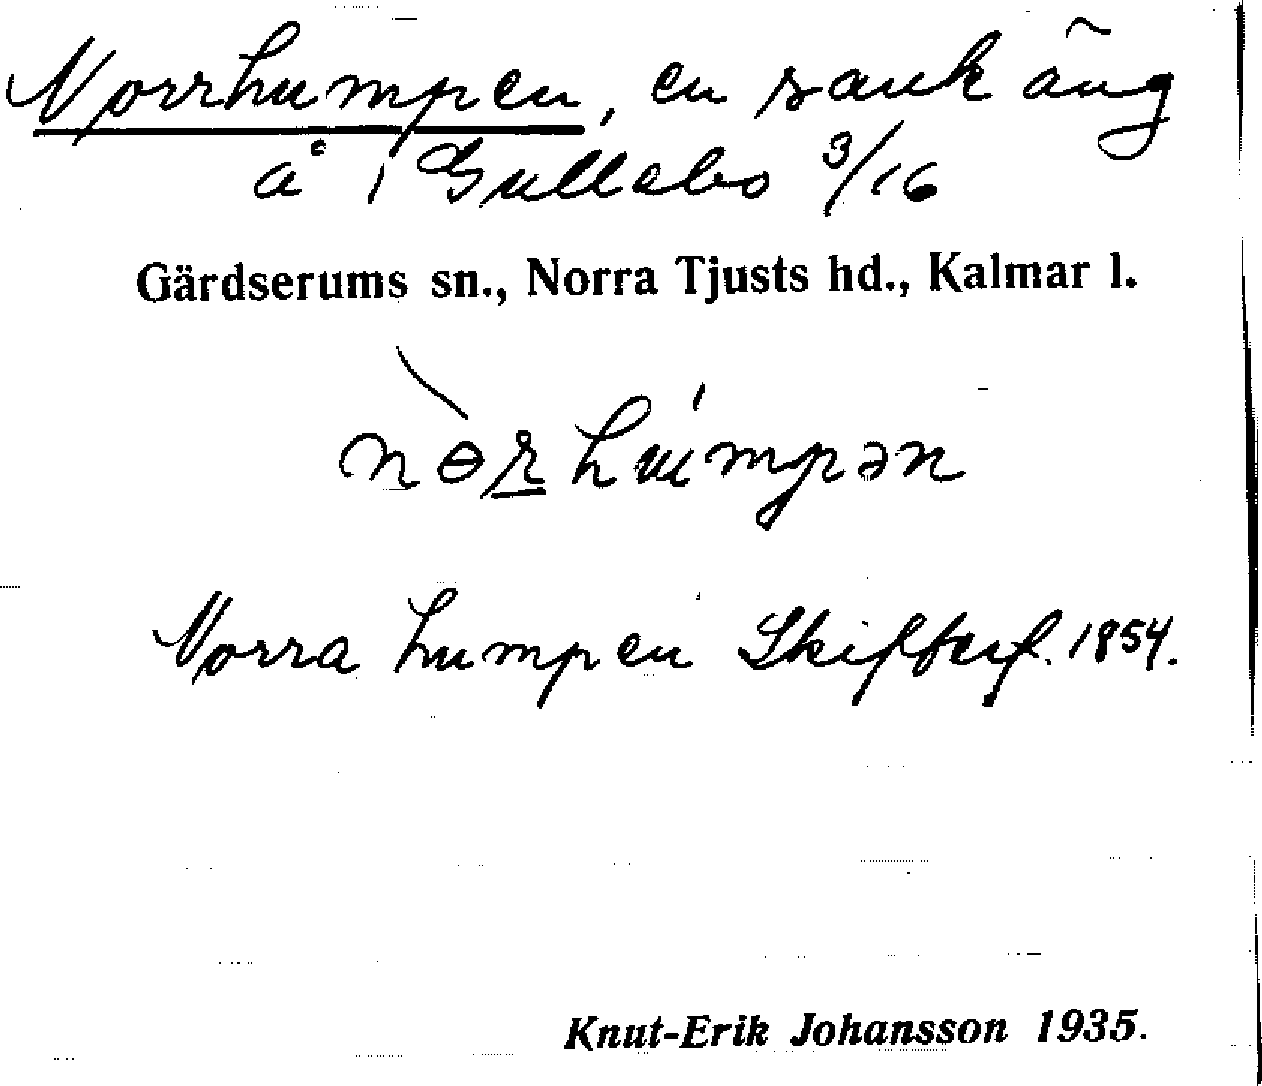 Norrhumpen, en sank äng
å i Gullebo 3/16
Gärdserums sn., Norra Tjusts hd., Kalmar l.
nɵrhumpən
Norra humpen Skiftesf. 1854.
Knut-Erik Johansson 1935.